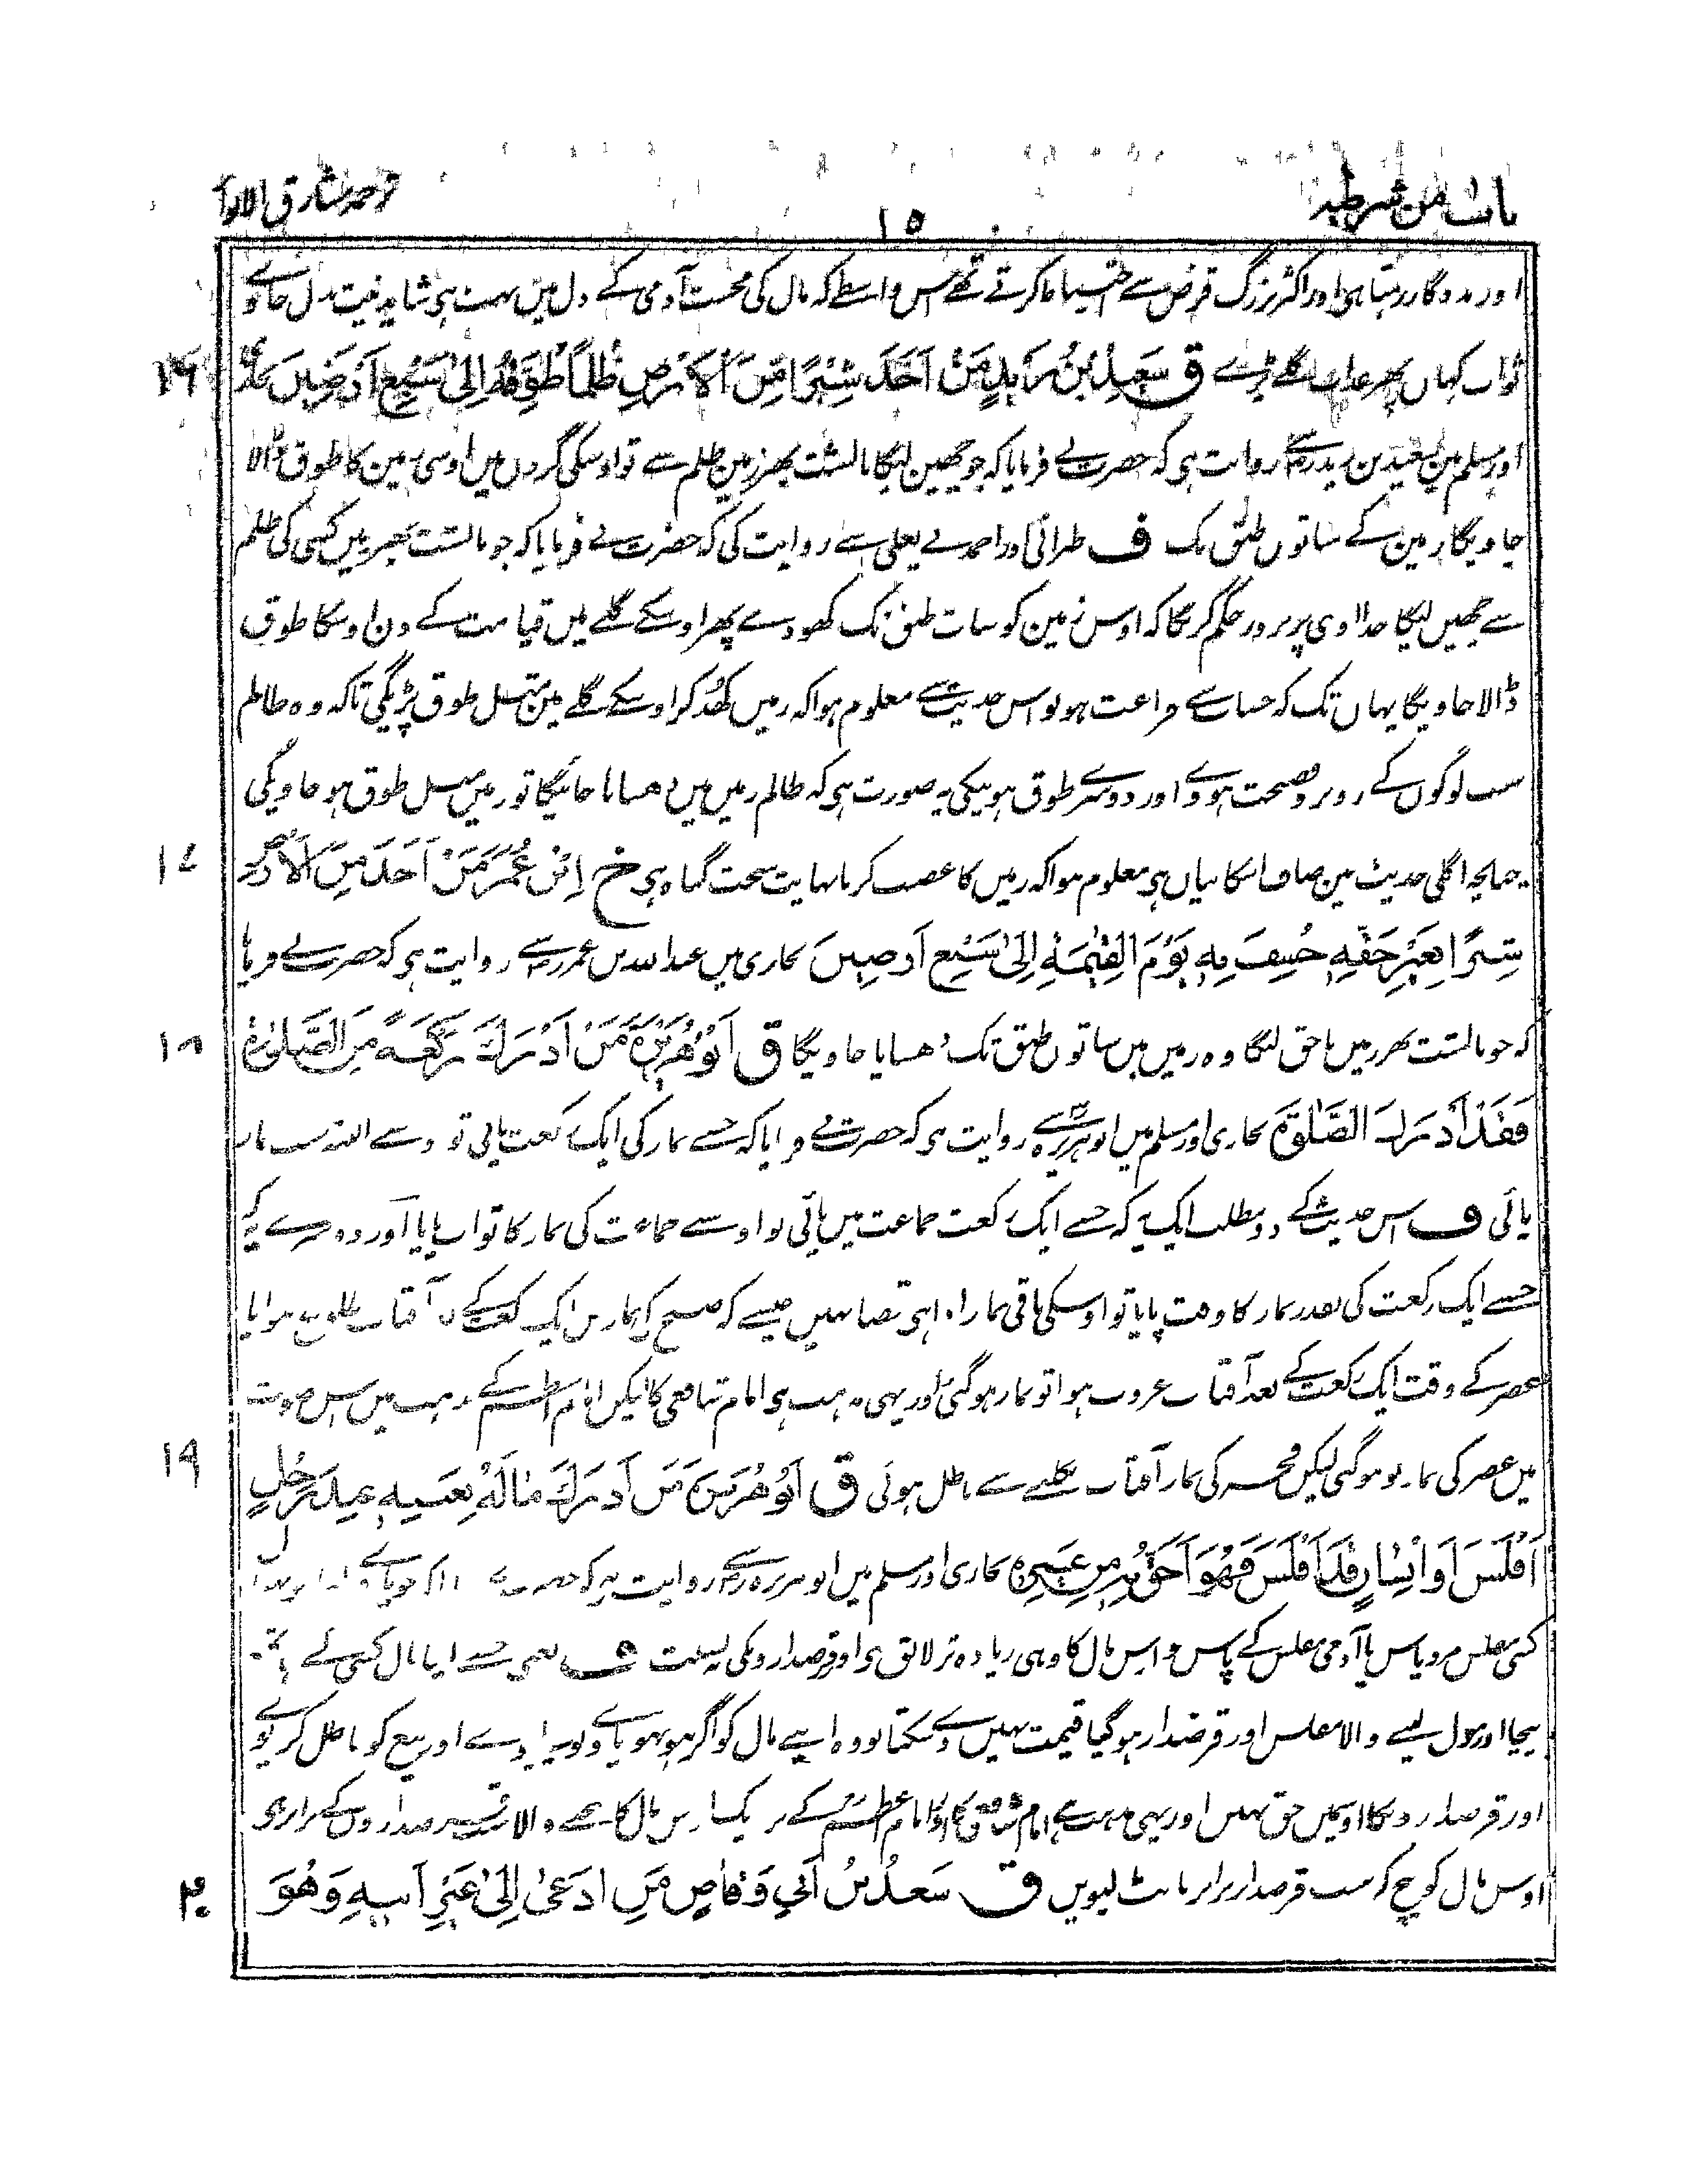 باب من شرطیہ
۱۵
ترجمہ مشارق الانوار
اور مددگار رہتا ہی اور اکثر بزرگ قرض سے احتیاط کرتے تھے اس واسطے کہ مال کی محبت آدمی کے دل میں بہت ہی شاید نیت بدل جاوے
ثواب کہاں پھر عذاب گلے پڑے ق سَعِیْدُ بْنُ زَیْدٍ مَنْ اَخَذَ شِبْرًا مِّنَ الْاَرْضِ ظُلْمًا طُوِّقَہٗ اِلٰی سَبْعِ اَرَضِیْنَ
۱۶
اور مسلم میں سعید بن زید رض سے روایت ہی کہ حضرت نے فرمایا کہ جو چھین لیگا بالشت بھر زمین ظلم سے تو اوسکی گردن میں اوسی زمین کا طوق ڈالا
جاویگا زمین کے ساتوں طبق تک ف طبرانی اور احمد نے یعلی سے روایت کی کہ حضرت نے فرمایا کہ جو بالشت بھر زمیں کسی کی ظلم
سے چھین لیگا خدا اوسی پر زور حکم کریگا کہ اوس زمین کو سات طبق تک کھودے پھر اوسکے گلے میں قیامت کے دن اوسکا طوق
ڈالا جاویگا یہاں تک کہ حساب سے فراغت ہو تو اس حدیث سے معلوم ہوا کہ زمیں کھد کر اوسکے گلے میں مثل طوق پڑیگی تاکہ وہ ظالم
سب لوگوں کے روبرو فضیحت ہووے اور دوسرے طوق ہونیکی یہ صورت ہی کہ ظالم زمیں میں دھسایا جائیگا تو زمیں مثل طوق ہو جاویگی
چنانچہ اگلی حدیث میں صاف اسکا بیاں ہی معلوم ہوا کہ زمیں کا غصب کرنا نہایت سخت گناہ ہی خ اِبْنُ عُمَرَ مَنْ اَخَذَ مِنَ الْاَرْضِ
۱۷
شِبْرًا بِغَیْرِ حَقِّہٖ خُسِفَ بِہٖ یَوْمَ الْقِیٰمَۃِ اِلٰی سَبْعِ اَرَضِیْنَ بخاری میں عبد اللہ بن عمر رض سے روایت ہی کہ حضرت نے فرمایا
کہ جو بالشت بھر زمیں ناحق لیگا وہ زمیں میں ساتوں طبق تک دھسایا جاویگا ق اَبُوْ ھُرَیْرَۃَ مَنْ اَدْرَكَ رَکْعَۃً مِّنَ الصَّلٰوۃِ
۱۸
فَقَدْ اَدْرَكَ الصَّلٰوۃَ بخاری اور مسلم میں ابو ہریرہ رض سے روایت ہی کہ حضرت نے فرمایا کہ جسے نماز کی ایک رکعت پائی تو وسے البتہ سب نماز
پائی ف اس حدیث کے دو مطلب ایک یہ کہ جسے ایک رکعت جماعت میں پائی تو اوسے جماعت کی نماز کا ثواب پایا اور دوسرے یہ کہ
جسے ایک رکعت کی بقدر نماز کا وقت پایا تو اوسکی باقی نماز ادا ہی قضا نہیں جیسے کہ صبح کی نماز میں ایک رکعت کے بعد آفتاب طلوع ہوا یا
عصر کے وقت ایک رکعت کے بعد آفتاب غروب ہوا تو نماز ہو گئی اور یہی مذہب ہی امام شافعی کا لیکن امام اعظم کے مذہب میں اس صورت
میں عصر کی نماز تو ہو گئی لیکن فجر کی نماز آفتاب نکلنے سے باطل ہوئی ق اَبُوْ ھُرَیْرَۃَ مَنْ اَدْرَكَ مَالَہٗ بِعَیْنِہٖ عِنْدَ رَجُلٍ
۱۹
اَفْلَسَ اَوْ اِنْسَانٍ قَدْ اَفْلَسَ فَھُوَ اَحَقُّ بِہٖ مِنْ غَیْرِہٖ بخاری اور مسلم میں ابو ہریرہ رض سے روایت ہی کہ حضرت نے
کسی مفلس مرد پاس یا آدمی مفلس کے پاس تو اس مال کا وہی زیادہ تر لائق ہی اور قرضدارونکی بہ نسبت ف یعنی جسے اپنا مال کسی کے ہاتھ
بیچا اور مول لینے والا مفلس اور قرضدار ہو گیا قیمت نہیں دے سکتا تو وہ اپنے مال کو اگر ہو بہو پاوے تو لیوے اور بیع کو باطل کر دے
اور قرضداروں کا اوسمیں حق نہیں اور یہی مذہب ہے امام شافعی کا اور امام اعظم کے نزدیک اس مال کا بیچنے والا قرضداروں کے برابر ہی
اوس مال کو بیچ کر سب قرضدار برابر بانٹ لیویں ق سَعْدُ بْنُ اَبِیْ وَقَّاصٍ مَنِ ادَّعٰی اِلٰی غَیْرِ اَبِیْہِ وَھُوَ
۲۰